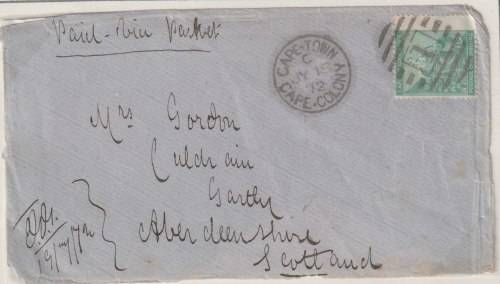 Paid - Via Packet
CAPE-TOWN
C
JY 15
72
CAPE-COLONY
Mrs Gordon
Culdrain
Gartly
Aberdeenshire
Scotland